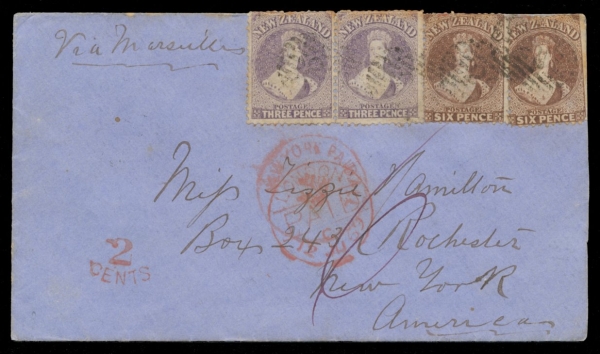 Via Marseilles
NEW ZEALAND
POSTAGE
THREE PENCE
NEW ZEALAND
POSTAGE
THREE PENCE
NEW ZEALAND
POSTAGE
SIX PENCE
NEW ZEALAND
POSTAGE
SIX PENCE
Miss Lizzie Hamilton
Box 243 Rochester
New York
America
2
CENTS